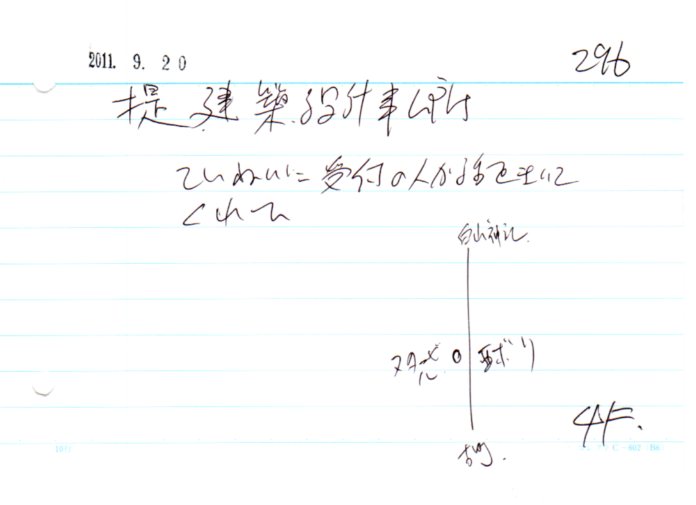 2011. 9. 20
296
堤建築設計事ム所
ていねいに受付の人が話をきいて
くれた
白山神社
ボリ
古町.
4F.